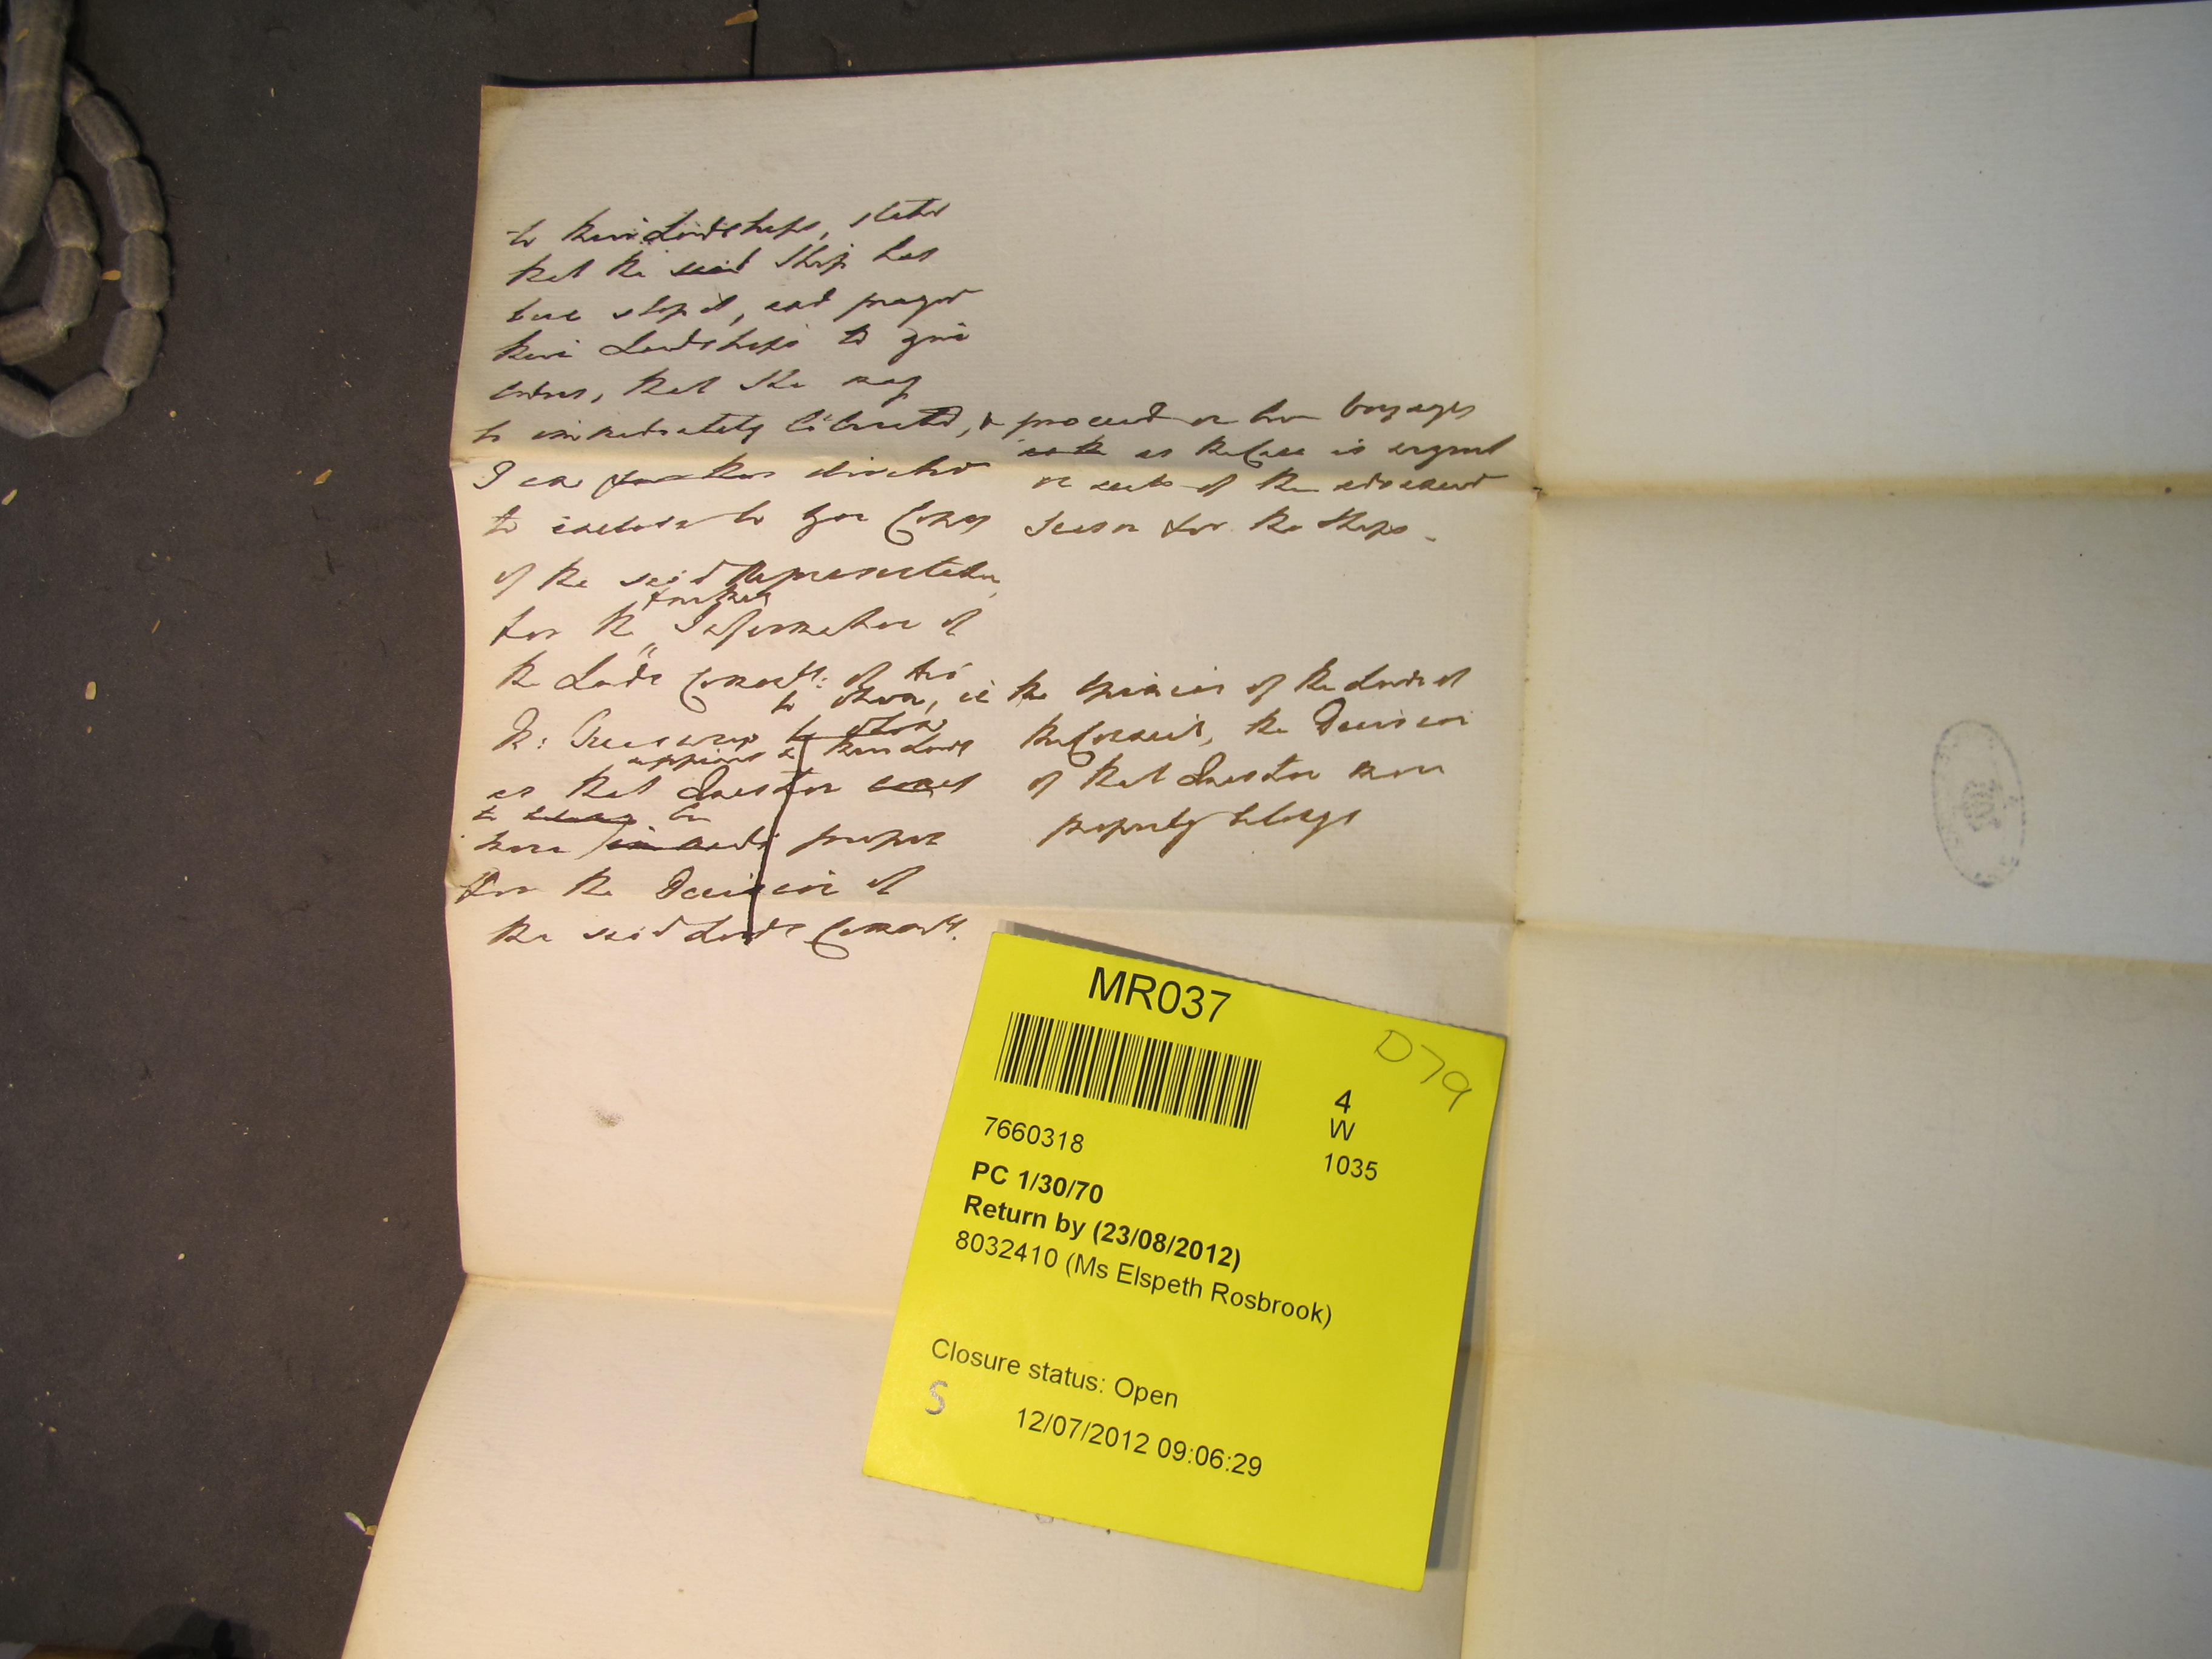 to their Lordships, stated
that the said Ship has
been stop'd, and prayed
their Lordships to give
orders, that She may
be immediately liberated, & proceed on her Voyage
as the Case is urgent
on acct. of the advanced
Season for the Ships.
I am further directed
to enclose to you Copy
of the said Representation,
further
for the Information of
the Lords Commrs: of His
to whom, in the Opinion of the Lords of
the Council, the Decision
of that Question more
properly belongs
M: Treasury to whom
appears to their Lordps
as that Question
to belong
more proper
for the Decision of
the said Lords Commrs.
MR037
D79
4
W
1035
7660318
PC 1/30/70
Return by (23/08/2012)
8032410 (Ms Elspeth Rosbrook)
Closure status: Open
S
12/07/2012 09:06:29